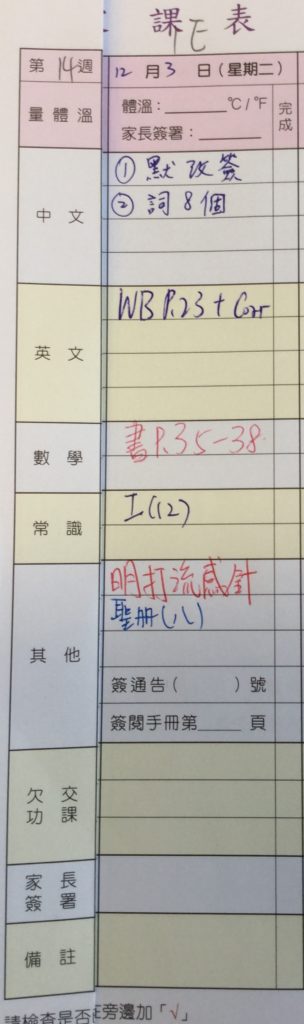 課表
1E
第14週 12月3日(星期二)
量體溫 體溫:______°C/°F 完成
家長簽署:______
中文 ①默改簽
②詞8個
英文 WB P.23 + Corr
數學 書P.35-38
常識 工(12)
其他 明打流感針
聖冊(八)
簽通告( )號
簽閱手冊第____頁
欠交功課
家長簽署
備註
請檢查是否 在旁邊加「√」